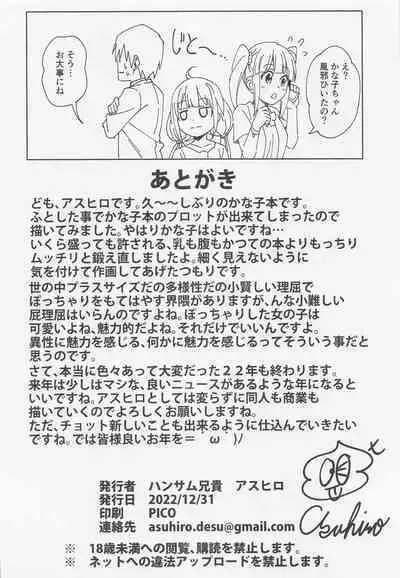 え？
かな子ちゃん
風邪ひいたの？
じと〜
そう…
お大事にね
あとがき
ども、アスヒロです。久〜〜しぶりのかな子本です。
ふとした事でかな子本のプロットが出来てしまったので
描いてみました。やはりかな子はよいですね…
いくら盛っても許される、乳も腹もかつての本よりもっちり
ムッチリと鍛え直しましたよ。細く見えないように
気を付けて作画してあげたつもりです。
世の中プラスサイズだの多様性だの小賢しい理屈で
ぽっちゃりをもてはやす界隈がありますが、んな小難しい
屁理屈はいらんのですよね。ぽっちゃりした女の子は
可愛いよね、魅力的だよね。それだけでいいんですよ。
異性に魅力を感じる、何かに魅力を感じるってそういう事だと
思うのです。
さて、本当に色々あって大変だった２２年も終わります。
来年は少しはマシな、良いニュースがあるような年になると
いいですね。アスヒロとしては変らずに同人も商業も
描いていくのでよろしくお願いしますね。
ただ、チョット新しいことも出来るように仕込んでいきたい
ですね。では皆様良いお年を＝´ω｀)ﾉ
発行者 ハンサム兄貴 アスヒロ
発行日 2022/12/31
印刷 PICO
連絡先 asuhiro.desu@gmail.com
Asuhiro
※ 18歳未満への閲覧、購読を禁止します。
※ ネットへの違法アップロードを禁止します。